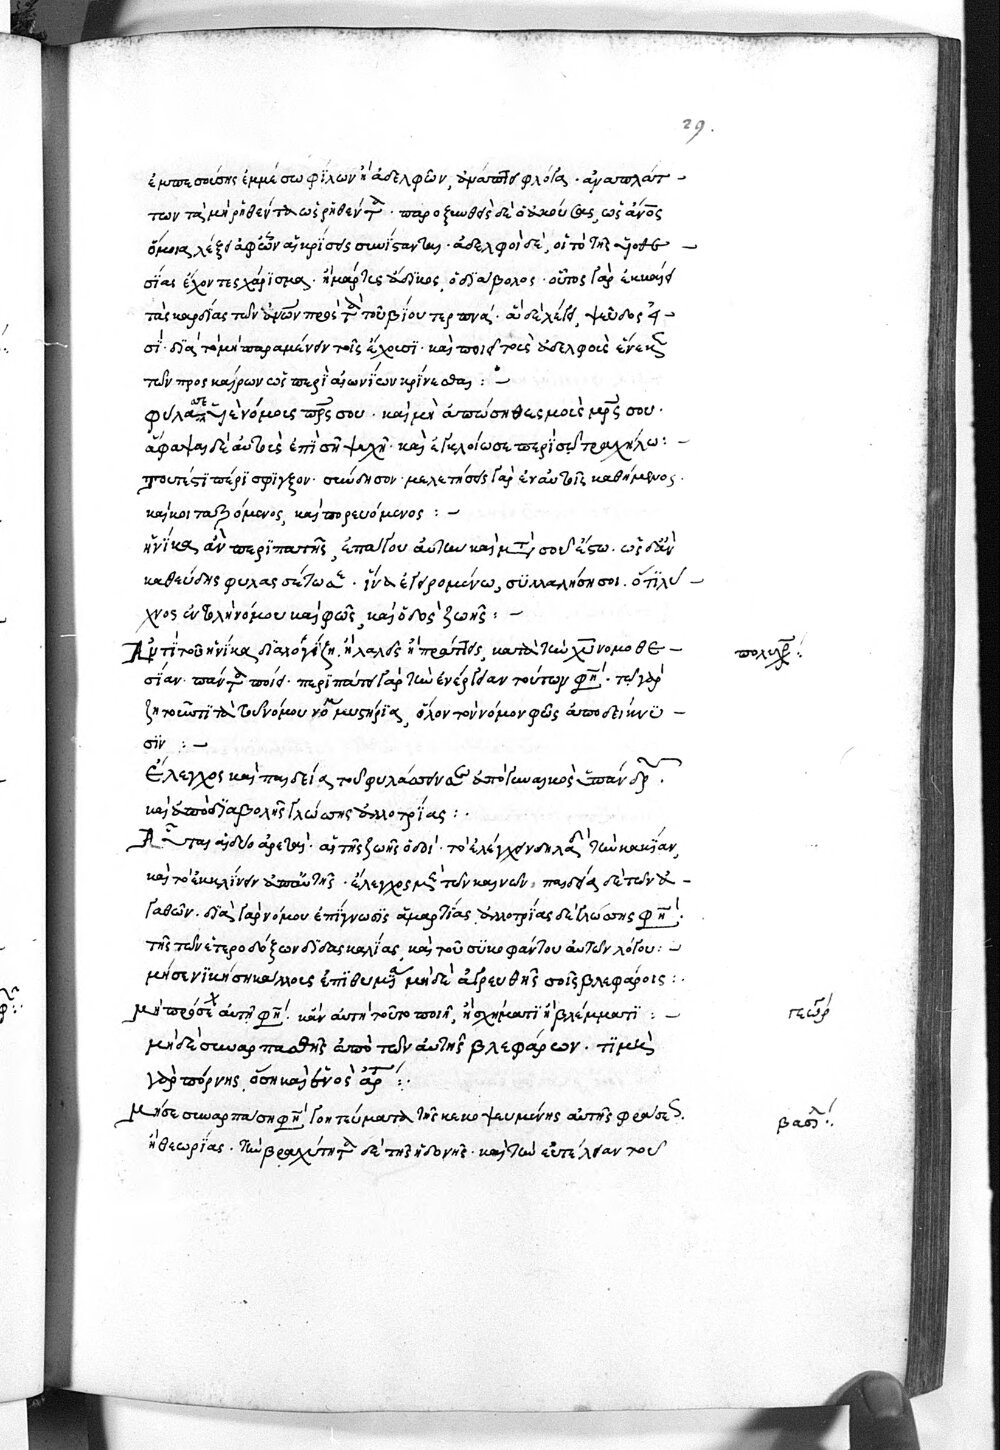 29.
ἐμπεσούσης ἐμμέσω φίλων ἢ ἀδελφῶν, ἀνάπτει φλόγα · ἀναπλάτ
των τὰ μὴ ῥηθέντα ὡς ῥηθέντα · παροξυνθεὶς δὲ ὁ ἀκούσας, ὡς ἄνος
ὅμοια λέξει ἀφ' ὧν αἱ κρίσεις συνίστανται · ἀδελφοὶ δὲ, οἱ τὸ τῆς υἱοθε
σίας ἔχοντες χάρισμα · ἡ μάρτυς ἄδικος, ὁ διάβολος · οὗτος γὰρ ἐκκαίει
τὰς καρδίας τῶν ἀνων πρὸς τὰ τοῦ βίου τερπνά · ἃ δὲ λέγει, ψεῦδος ἐ
σι · διὰ τὸ μὴ παραμένειν τοῖς ἔχουσι · καὶ ποιεῖ τοὺς ἀδελφοὺς ἕνεκεν
τῶν προσκαίρων ὡς περὶ αἰωνίων κρίνεσθαι :
φύλαττε νόμους πρς σου · καὶ μὴ ἀπώση θεσμοὺς μρς σου ·
ἄφαψαι δὲ αὐτοὺς ἐπὶ σῆ ψυχῆ · καὶ ἐγκλοίωσαι περὶ σῶ τραχήλω :
τουτέστι περίσφιγξον · σύνδησον · μελετήσεις γὰρ ἐν αὐτοῖς καθήμενος ·
καὶ κοιταζόμενος, καὶ πορευόμενος :
ἡνίκα ἂν περιπατῆς, ἐπάγου αὐτὴν καὶ μετὰ σοῦ ἔστω · ὡς δ' ἂν
καθεύδης φυλασσέτω σε · ἵνα ἐγειρομένω, συλλαλήση σοι · ὅτι λύ
χνος ἐντολὴ νόμου καὶ φῶς, καὶ ὁδὸς ζωῆς :
Ἀντὶ τοῦ ἡνίκα διαλογίζη, ἢ λαλεῖς ἢ πράττεις, κατὰ τὴν χυ νομοθε
πολυχρ
σίαν · πάντα ποίει · περιπάτει γὰρ τὴν ἐνέργειαν τούτων φησὶ · τὸ γὰρ
ζητοῦντι τὰ τοῦ νόμου μυστήρια, ὅλον τὸν νόμον φῶς ἀποδεικνύ
σιν :
Ἔλεγχος καὶ παιδεία τοῦ φυλάσσειν σε ἀπὸ γυναικὸς ὑπάνδρου ·
καὶ ἀπὸ διαβολῆς γλώσσης ἀλλοτρίας :
Αὗται αἱ δύο ἀρεταὶ · αἱ τῆς ζωῆς ὁδοί · τὸ ἐλέγχειν δηλαδὴ τὴν κακίαν,
καὶ τὸ ἐκκλίνειν ἀπ' αὐτῆς · ἔλεγχος μὲν τῶν κακῶν, παιδεία δὲ τῶν ἀ
γαθῶν · διὰ γὰρ νόμου ἐπίγνωσις ἁμαρτίας, ἀλλοτρίας δὲ γλώσσης φησὶ ·
τῆς τῶν ἑτεροδόξων διδασκαλίας, καὶ τοῦ συκοφάντου αὐτῶν λόγου :
μή σε νικήση κάλλους ἐπιθυμία μηδὲ ἀγρευθῆς σοῖς βλεφάροις :
μὴ πρόσεχε αὐτῆ φησὶ · κἂν αὐτὴ τοῦτο ποιῆ, ἢ σχήματι ἢ βλέμματι :
γεωρ
μηδὲ συναρπασθῆς ἀπὸ τῶν αὐτῆς βλεφάρων · τιμὴ
γὰρ πόρνης, ὅση καὶ ἑνὸς ἄρτου :
μή σε συναρπάση φησὶ, γοητεύματα τῆς κεκομψευμένης αὐτῆς φράσεως
βασιλ
ἢ θεωρίας · τὴν βραχύτητα δὲ τῆς ἡδονῆς · καὶ τὴν εὐτέλειαν τοῦ